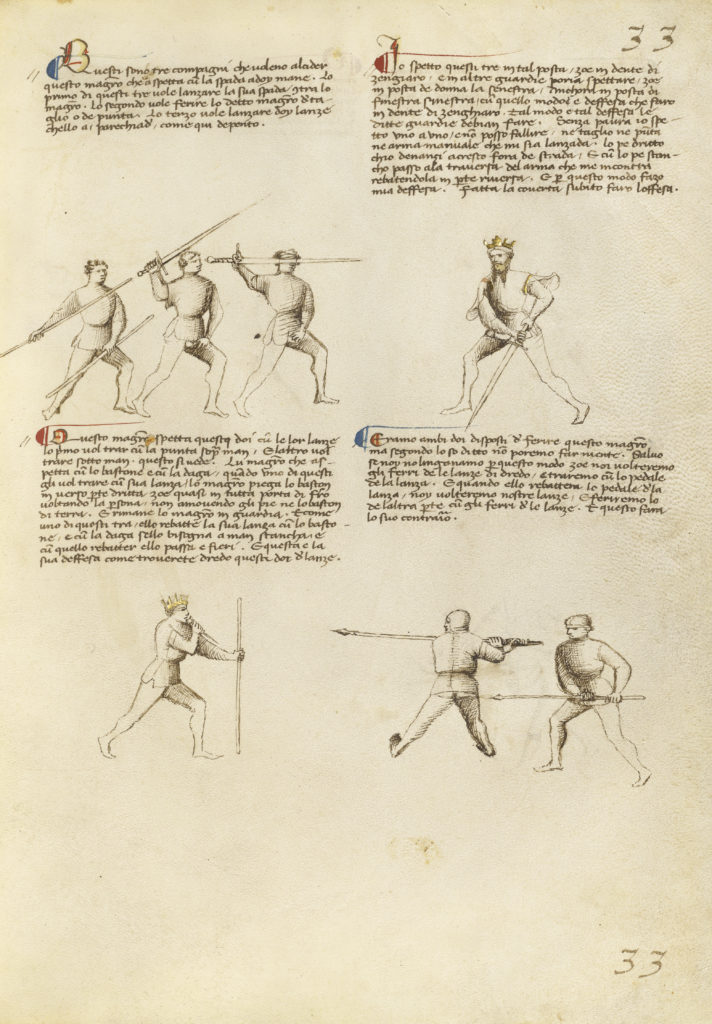 33
Questi sono tre compagni che voleno alcider
questo magro che aspetta cū la spada a doy mane. Lo
primo di questi tre vole lanzare la sua spada 9tra lo
magro. Lo segondo vole ferire lo detto magro d'ta-
glio o de punta. Lo terzo vole lanzare doy lanze
chello a aparechiad, come qui depento.
Io spetto questi tre in tal posta, zoe in dente di
zengiaro, e in altre guardie poria spettare, zoe
in posta de donna la senestra, Anchora in posta di
finestra sinestra, cū quello modo e deffesa che faro
in dente di zenghiaro. Tal modo e tal deffesa le
ditte guardie debian fare. Senza paura io spe-
tto uno a uno, e nō posso fallire, ne taglio ne punta
ne arma manuale che mi sia lanzada. lo pe dritto
chio denanzi acresco fora de strada, E cū lo pe stan-
cho passo ala traversa del arma che me incontra
rebatendola in pte riversa. E p questo modo fazo
mia deffesa. Fatta la coverta subito faro loffesa.
Questo magro spetta questi doi cū le lor lanze
lo pmo vol trar cū la punta sopra man, E laltro vol
trare sotto man, questo si vede. Lu magro che as-
petta cū lo bastone e cū la daga, quādo uno di questi
gli vol trare cū sua lanza, lo magro piega lo baston
in verso pte dritta, zoe quasi in tutta porta di fro
voltando la psona, non amovendo gli pie ne lo baston
di terra. E rimane lo magro in guardia. E come
uno di questi tra, ello rebatte la sua lanza cū lo basto-
ne, e cū la daga sello bisogna a man stancha, e
cū quello rebatter ello passa e fieri. E questa e la
sua deffesa come troverete dredo questi doi d' lanze.
Eramo ambi doi disposti d' ferire questo magro
ma segondo lo so ditto nō poremo far niente. Salvo
se noy no lingonamo p questo modo zoe noi volteremo
gli ferri de le lanze di dredo, e traremo cū lo pedale
de la lanza. E quando ello rebattera lo pedale d'la
lanza, noy volteremo nostre lanze, E feriremo lo
de laltra pte cū gli ferri d' le lanze. E questo fara
lo suo contrario.
33